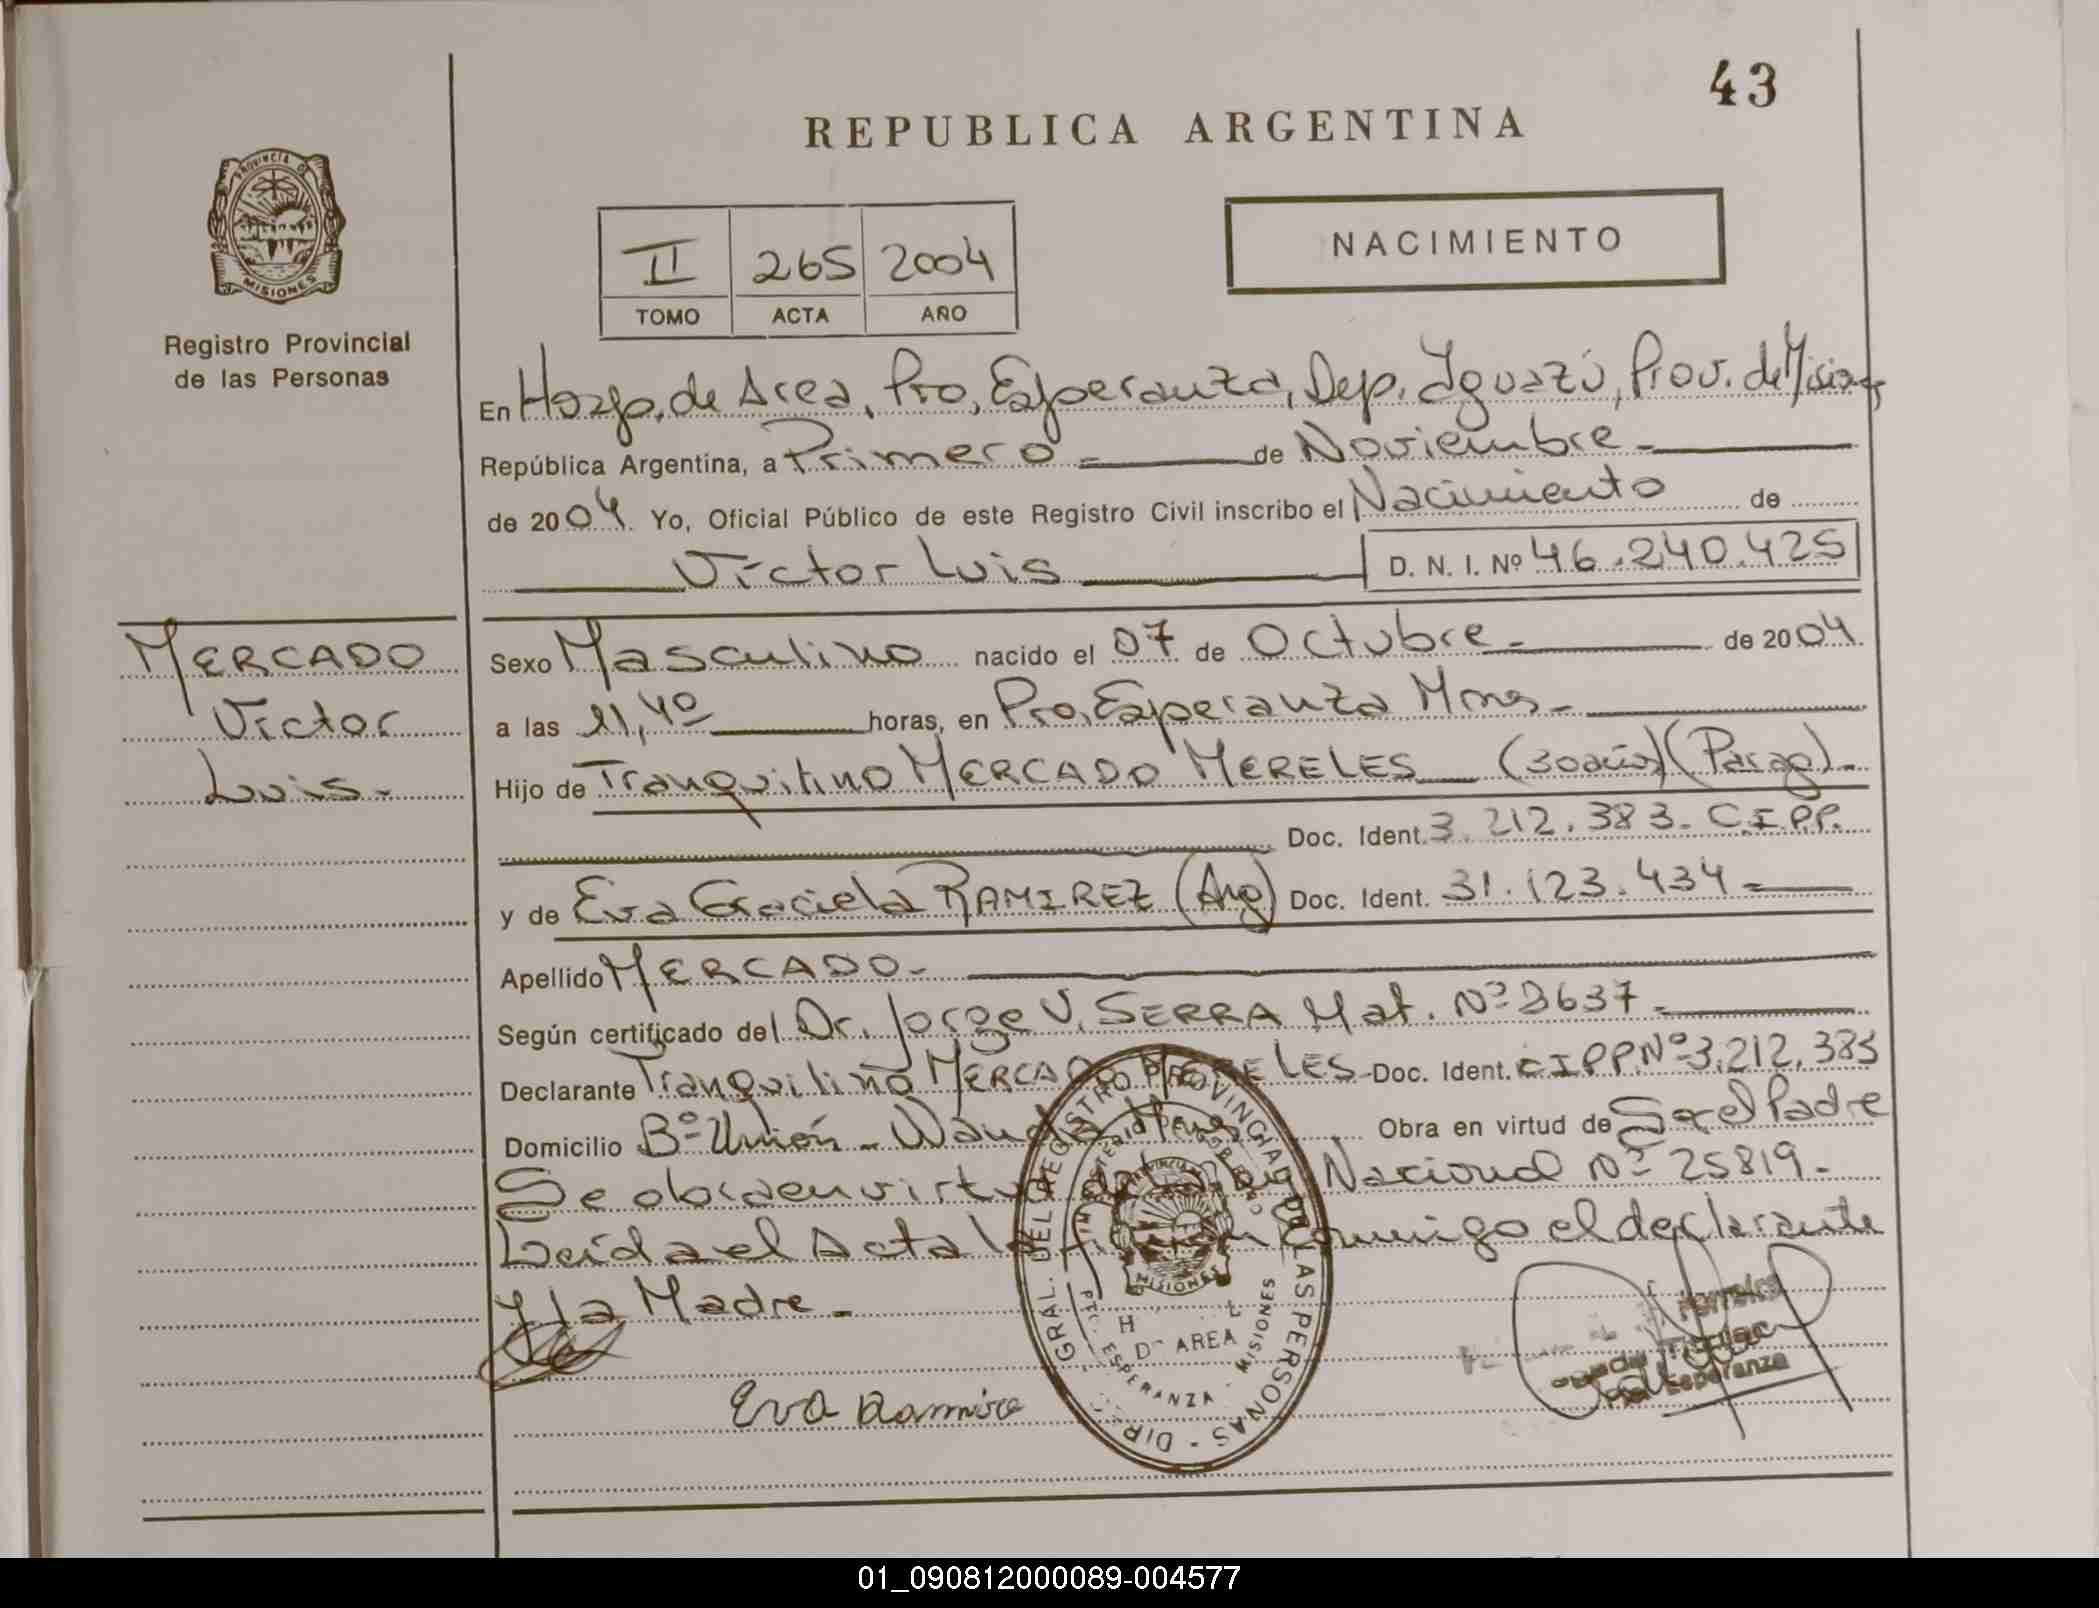 43
REPUBLICA ARGENTINA
PROVINCIA DE
MISIONES
Registro Provincial
de las Personas
II 265 2004
TOMO ACTA AÑO
NACIMIENTO
En Hosp. de Area, Pto, Esperanza, Dep. Iguazú, Prov. de Misiones
República Argentina, a Primero = de Noviembre -
de 2004. Yo, Oficial Público de este Registro Civil inscribo el Nacimiento de
Víctor Luis
D. N. I. Nº 46.240.425
MERCADO
Víctor
Luis.-
Sexo Masculino nacido el 07 de Octubre - de 2004.
a las 11,40 horas, en Pto, Esperanza Mnes -
Hijo de Tranquilino MERCADO MERELES (30 años) (Parag).-
Doc. Ident. 3.212.383. C.I.P.P.
y de Eva Graciela RAMIREZ (Arg) Doc. Ident. 31.123.434 =
Apellido MERCADO -
Según certificado del Dr. Jorge V. SERRA Mat. Nº 3637 -
Declarante Tranquilino MERCADO MERELES - Doc. Ident. CIPP Nº 3.212.383
Domicilio Bº Unión - Wanda Mnes Obra en virtud de Ser el Padre
Se obra en virtud de la Ley Nacional Nº 25819.-
Leída el Acta la firman conmigo el declarante
y la Madre -
Eva Ramirez
DIR. GRAL. DEL REGISTRO PROVINCIAL DE LAS PERSONAS
MINISTERIO DE GOBIERNO
PROVINCIA DE
MISIONES
H
DE AREA
PTO. ESPERANZA - MISIONES
Ferreira
Titular
Esperanza
01_090812000089-004577